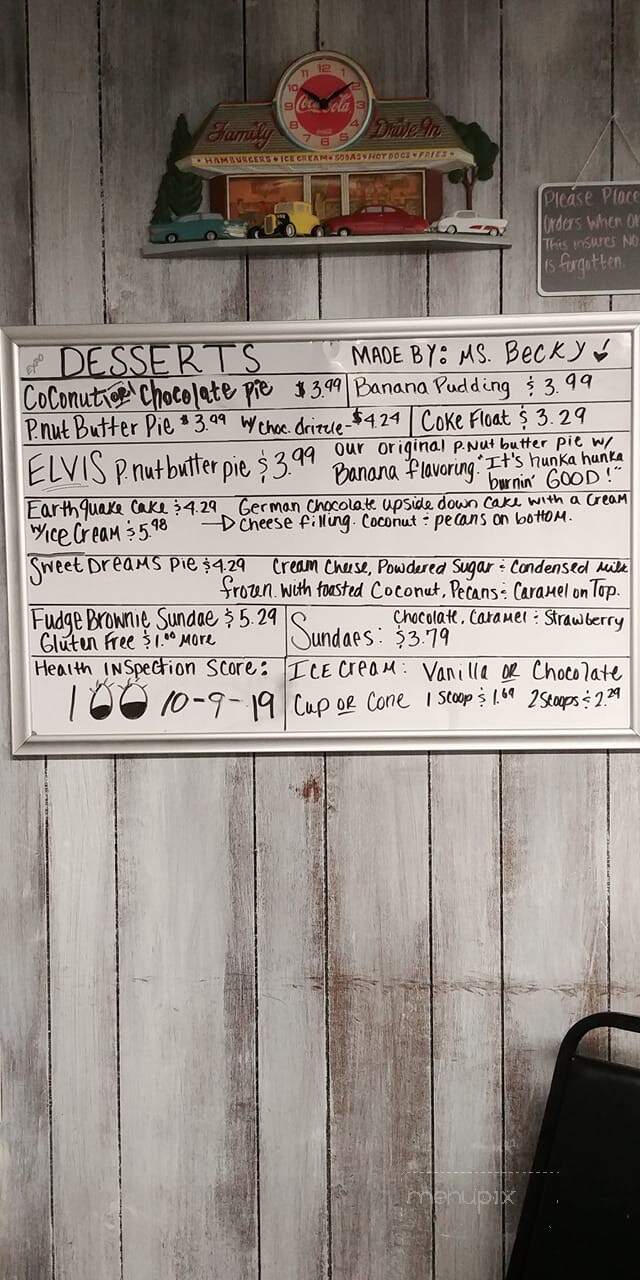 12
Coca-Cola
Family Drive-In
HAMBURGERS • ICE CREAM • SODAS • HOT DOGS • FRIES
Please Place
Orders When
This insures No
is forgotten.
DESSERTS MADE BY: MS. BECKY
Coconut or Chocolate Pie $3.99
Banana Pudding $3.99
P.nut Butter Pie $3.99 w/choc. drizzle - $4.24
Coke Float $3.29
ELVIS P.nut butter pie $3.99
our original P.Nut butter pie w/
Banana flavoring. "It's hunka hunka
burnin' GOOD!"
Earthquake Cake $4.29 German Chocolate upside down cake with a cream
w/Ice Cream $5.98 cheese filling. Coconut & pecans on bottom.
Sweet Dreams Pie $4.29 Cream Cheese, Powdered Sugar & Condensed Milk
frozen. With toasted Coconut, Pecans & Caramel on Top.
Fudge Brownie Sundae $5.29
Gluten Free $1.00 More
Chocolate, Caramel & Strawberry
Sundaes: $3.79
Health Inspection Score:
100 10-9-19
ICE CREAM: Vanilla OR Chocolate
Cup OR Cone 1 Scoop $1.69 2 Scoops $2.29
menupix